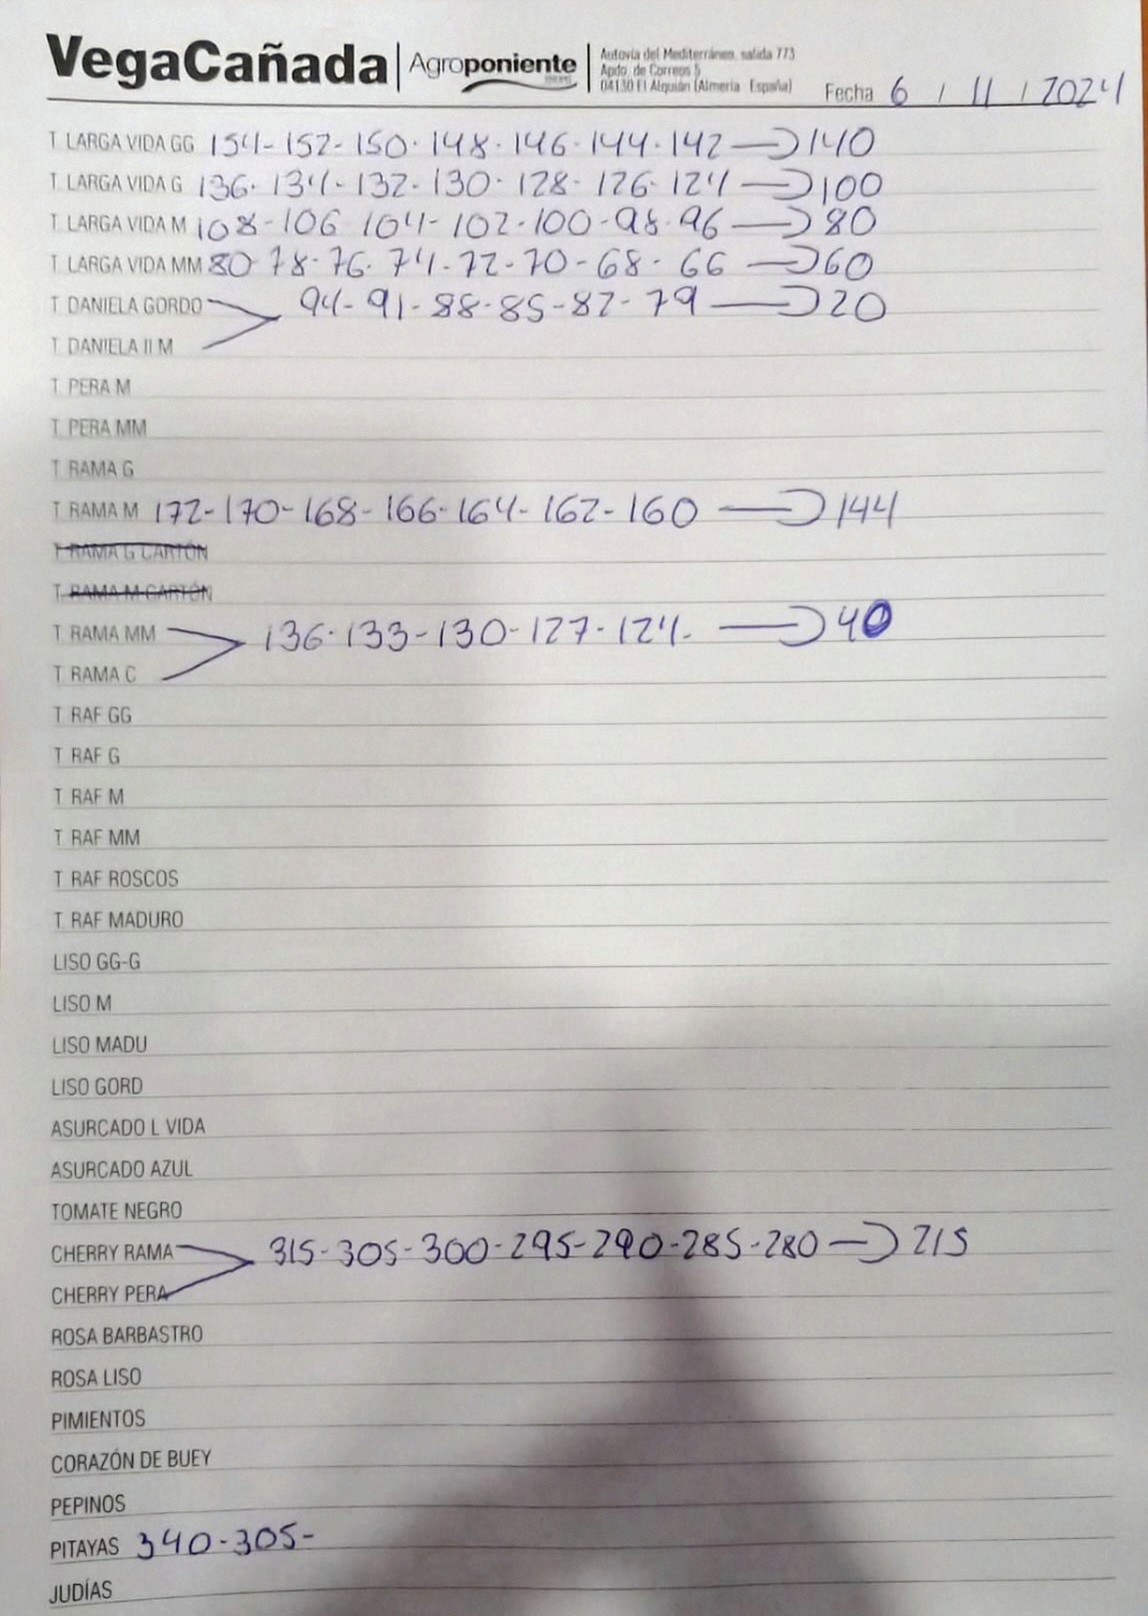 VegaCañada Agroponiente Autovía del Mediterráneo, salida 773
Apdo. de Correos 5
04130 El Alquián (Almería España) Fecha 6 / 11 / 2024
T. LARGA VIDA GG 154-152-150-148-146-144-142 → 140
T. LARGA VIDA G 136-134-132-130-128-126-124 → 100
T. LARGA VIDA M 108-106-104-102-100-98-96 → 80
T. LARGA VIDA MM 80-78-76-74-72-70-68-66 → 60
T. DANIELA GORDO 94-91-88-85-82-79 → 20
T. DANIELA II M
T. PERA M
T. PERA MM
T. RAMA G
T. RAMA M 172-170-168-166-164-162-160 → 144
T. RAMA G CARTÓN
T. RAMA M CARTÓN
T. RAMA MM 136-133-130-127-124- → 40
T. RAMA C
T. RAF GG
T. RAF G
T. RAF M
T. RAF MM
T. RAF ROSCOS
T. RAF MADURO
LISO GG-G
LISO M
LISO MADU
LISO GORD
ASURCADO L VIDA
ASURCADO AZUL
TOMATE NEGRO
CHERRY RAMA 315-305-300-295-290-285-280 → 215
CHERRY PERA
ROSA BARBASTRO
ROSA LISO
PIMIENTOS
CORAZÓN DE BUEY
PEPINOS
PITAYAS 340-305-
JUDÍAS